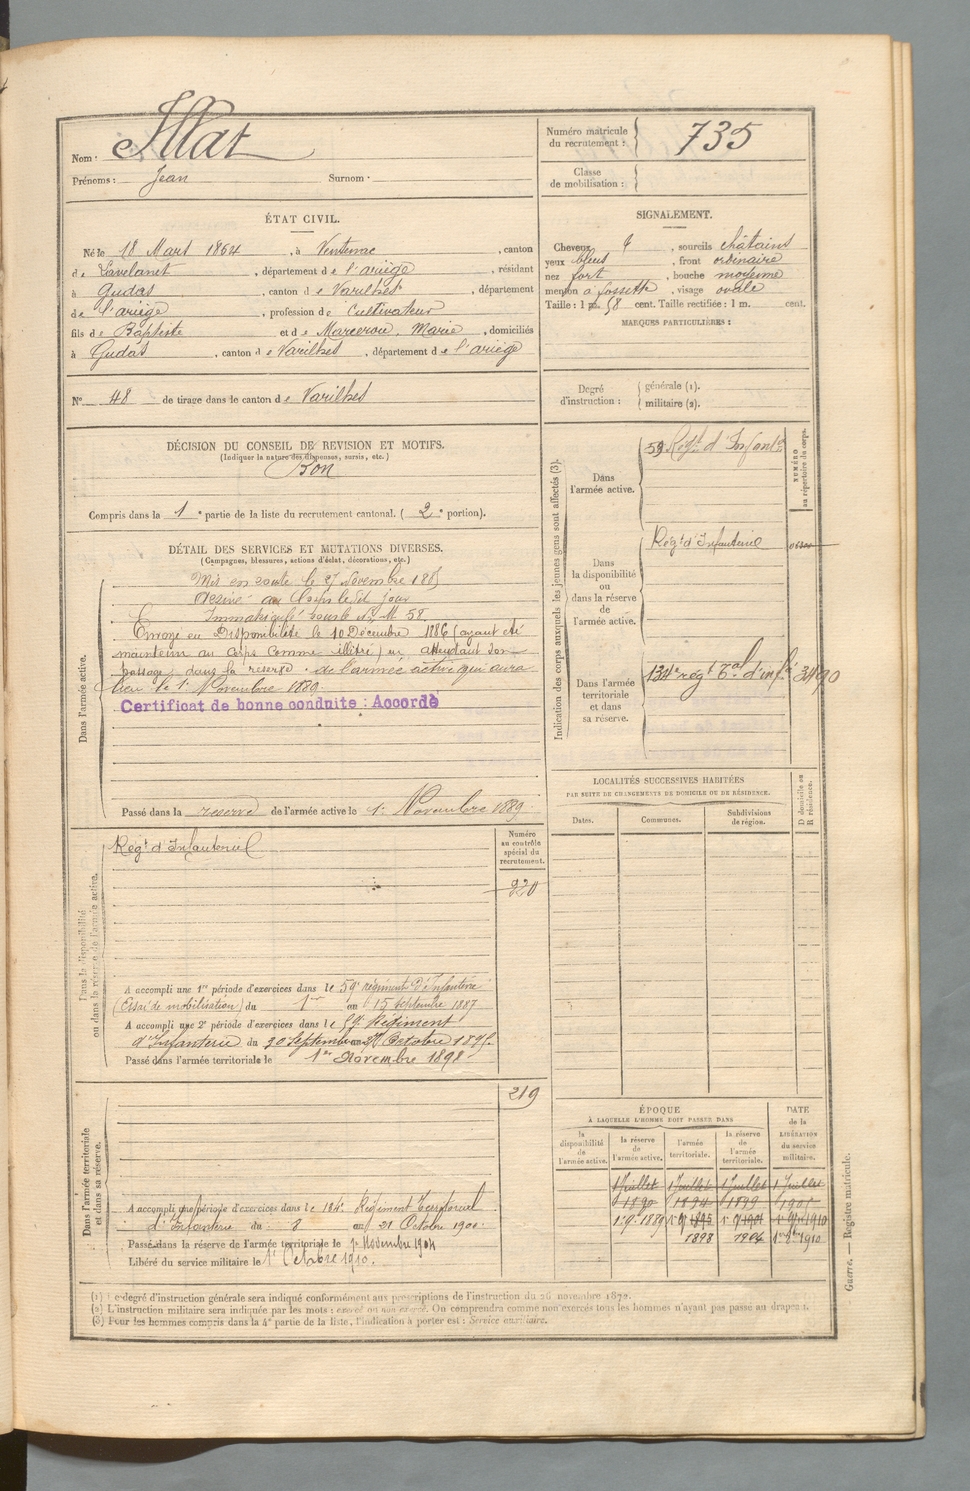 Nom : Illat
Prénoms : Jean Surnom :
Numéro matricule du recrutement : 735
Classe de mobilisation :
ÉTAT CIVIL.
Né le 18 Mars 1864, à Ventenac, canton
de Lavelanet, département de l'ariège, résidant
à Gudas, canton de Varilhes, département
de l'ariège, profession de Cultivateur
fils de Baptiste et de Marcerou, Marie, domiciliés
à Gudas, canton de Varilhes, département de l'ariège
N° 48 de tirage dans le canton de Varilhes
SIGNALEMENT.
Cheveux, sourcils châtains
yeux bleus, front ordinaire
nez fort, bouche moyenne
menton à fossette, visage ovale
Taille : 1 m. 58 cent. Taille rectifiée : 1 m. cent.
MARQUES PARTICULIÈRES :
Degré d'instruction : générale (1).
militaire (2).
DÉCISION DU CONSEIL DE REVISION ET MOTIFS.
(Indiquer la nature des dispenses, sursis, etc.)
Bon
Compris dans la 1e partie de la liste du recrutement cantonal. (2e portion).
DÉTAIL DES SERVICES ET MUTATIONS DIVERSES.
(Campagnes, blessures, actions d'éclat, décorations, etc.)
Dans l'armée active.
Mis en route le 27 Novembre 1885
Arrivé au Corps le dit jour
Immatriculé sous le No M 58.
Envoyé en Disponibilité le 10 Décembre 1886 (ayant été
maintenu au Corps comme illétré) en attendant son
passage dans la réserve de l'armée active qui aura
lieu le 1er Novembre 1889.
Certificat de bonne conduite : Accordé
Passé dans la réserve de l'armée active le 1er Novembre 1889
Indication des corps auxquels les jeunes gens sont affectés (3).
NUMÉRO au répertoire du corps.
Dans l'armée active.
59 Régt d'Infantie
Dans la disponibilité ou dans la réserve de l'armée active.
Régt d'Infanterie
Dans l'armée territoriale et dans sa réserve.
134e régt Tal d'infie 3490
LOCALITÉS SUCCESSIVES HABITÉES
PAR SUITE DE CHANGEMENTS DE DOMICILE OU DE RÉSIDENCE.
Dates. Communes. Subdivisions de région. D domicile ou R résidence.
Dans la disponibilité ou dans la réserve de l'armée active.
Régt d'Infanterie
Numéro au contrôle spécial du recrutement.
220
A accompli une 1re période d'exercices dans le 59e régiment d'Infanterie
(Essai de mobilisation) du 1er au 15 septembre 1887
A accompli une 2e période d'exercices dans le 59e Régiment
d'Infanterie du 30 Septembre au 27 Octobre 1895.
Passé dans l'armée territoriale le 1er Novembre 1898
219
Dans l'armée territoriale et dans sa réserve.
A accompli une période d'exercices dans le 134e Régiment Territorial
d'Infanterie du 8 au 21 Octobre 1900.
Passé dans la réserve de l'armée territoriale le 1er Novembre 1904
Libéré du service militaire le 1er Octobre 1910.
ÉPOQUE
À LAQUELLE L'HOMME DOIT PASSER DANS
DATE de la LIBÉRATION du service militaire.
la disponibilité de l'armée active. la réserve de l'armée active. l'armée territoriale. la réserve de l'armée territoriale.
1 Juillet 1 Juillet 1 Juillet 1 Juillet
1890 1894 1899 1905
1898 1904
(1) Le degré d'instruction générale sera indiqué conformément aux prescriptions de l'instruction du 26 novembre 1872.
(2) L'instruction militaire sera indiquée par les mots : exercé ou non exercé. On comprendra comme non exercés tous les hommes n'ayant pas passé au drapeau.
(3) Pour les hommes compris dans la 4e partie de la liste, l'indication à porter est : Service auxiliaire.
Guerre. — Registre matricule.